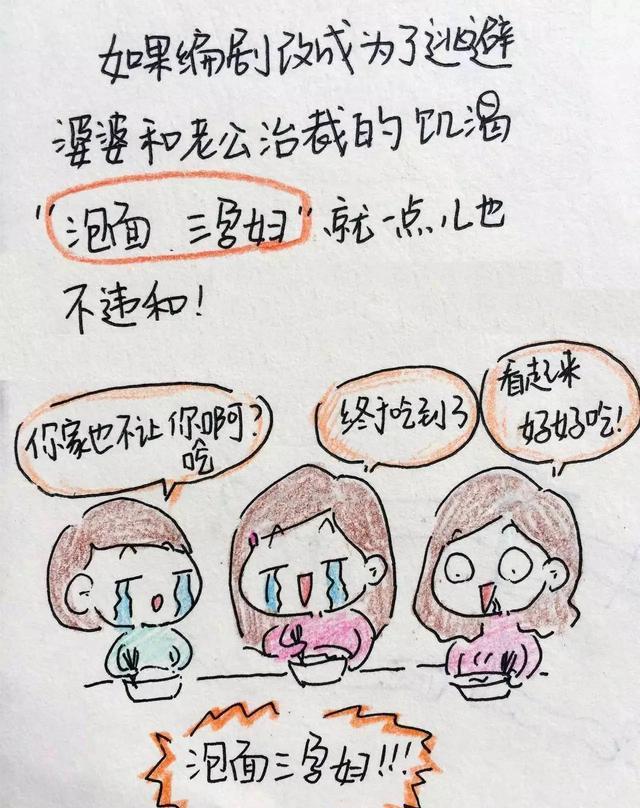 如果编剧改成为了逃避
婆婆和老公治裁的饥渴
“泡面 三孕妇”就一点儿也
不违和!
你家也不让你吃啊?
终于吃到了
看起来
好好吃!
泡面三孕妇!!!